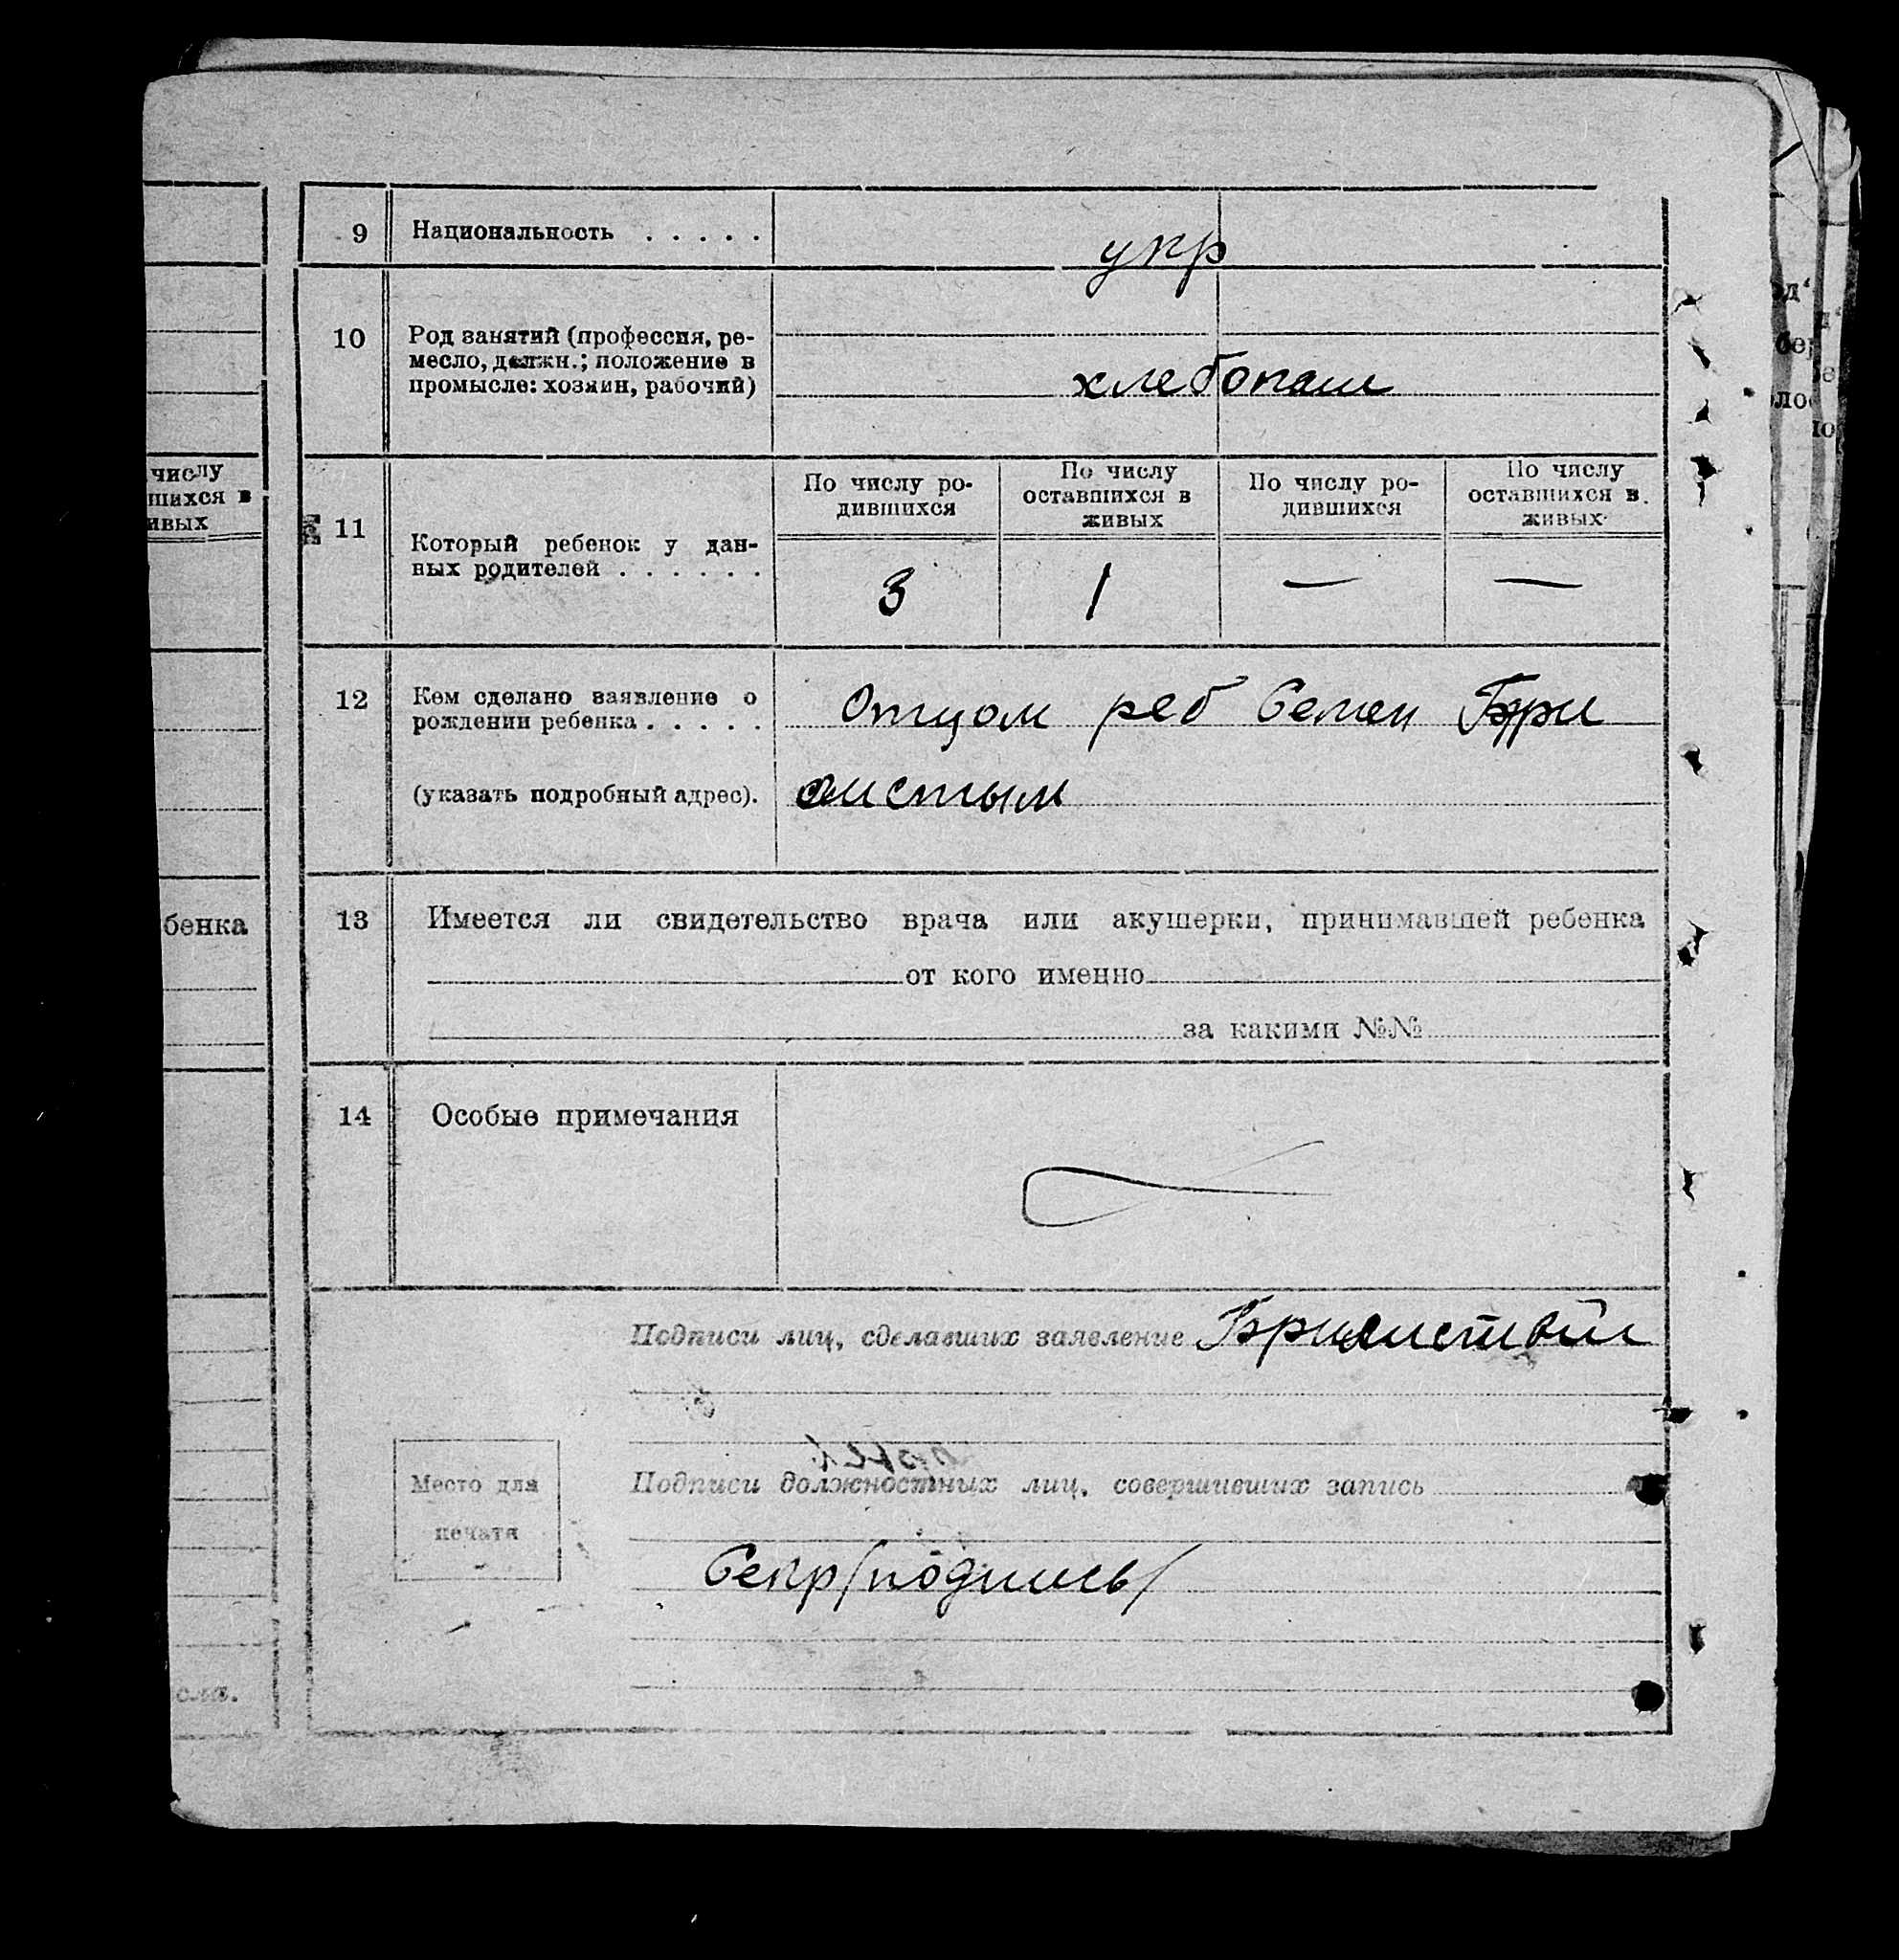 9 Национальность . . . . .
укр
10 Род занятий (профессия, ре-
месло, должн.; положение в
промысле: хозяин, рабочий)
хлебопаш
числу
шихся в
ивых
11 Который ребенок у дан-
ных родителей . . . . . .
По числу ро-
дившихся
По числу
оставшихся в
живых
По числу ро-
дившихся
По числу
оставшихся в
живых
3 1 — —
12 Кем сделано заявление о
рождении ребенка . . . . .
(указать подробный адрес).
Отцом реб Семен
бенка
13 Имеется ли свидетельство врача или акушерки, принимавшей ребенка
от кого именно
за какими №№
14 Особые примечания
Подписи лиц, сделавших заявление
Место для
печати
Подписи должностных лиц, совершивших запись
Секр/подпись/